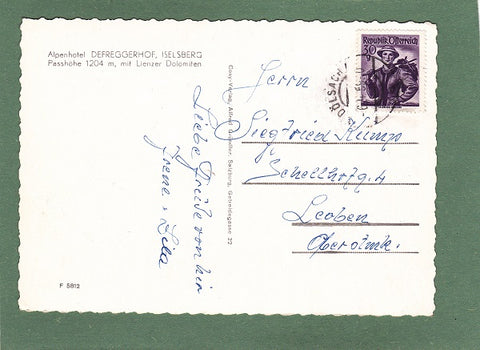 Alpenhotel DEFREGGERHOF, ISELSBERG
Passhöhe 1204 m, mit Lienzer Dolomiten
Liebe Grüße von hier
Irene + Lila
Cosy-Verlag, Alfred Gründler, Salzburg, Gabelsbergerstraße 22
30 g
Republik Österreich
DÖLSACH
Herrn
Siegfried Kump
Schellhofg. 4
Leoben
Oberstmk.
F 5812